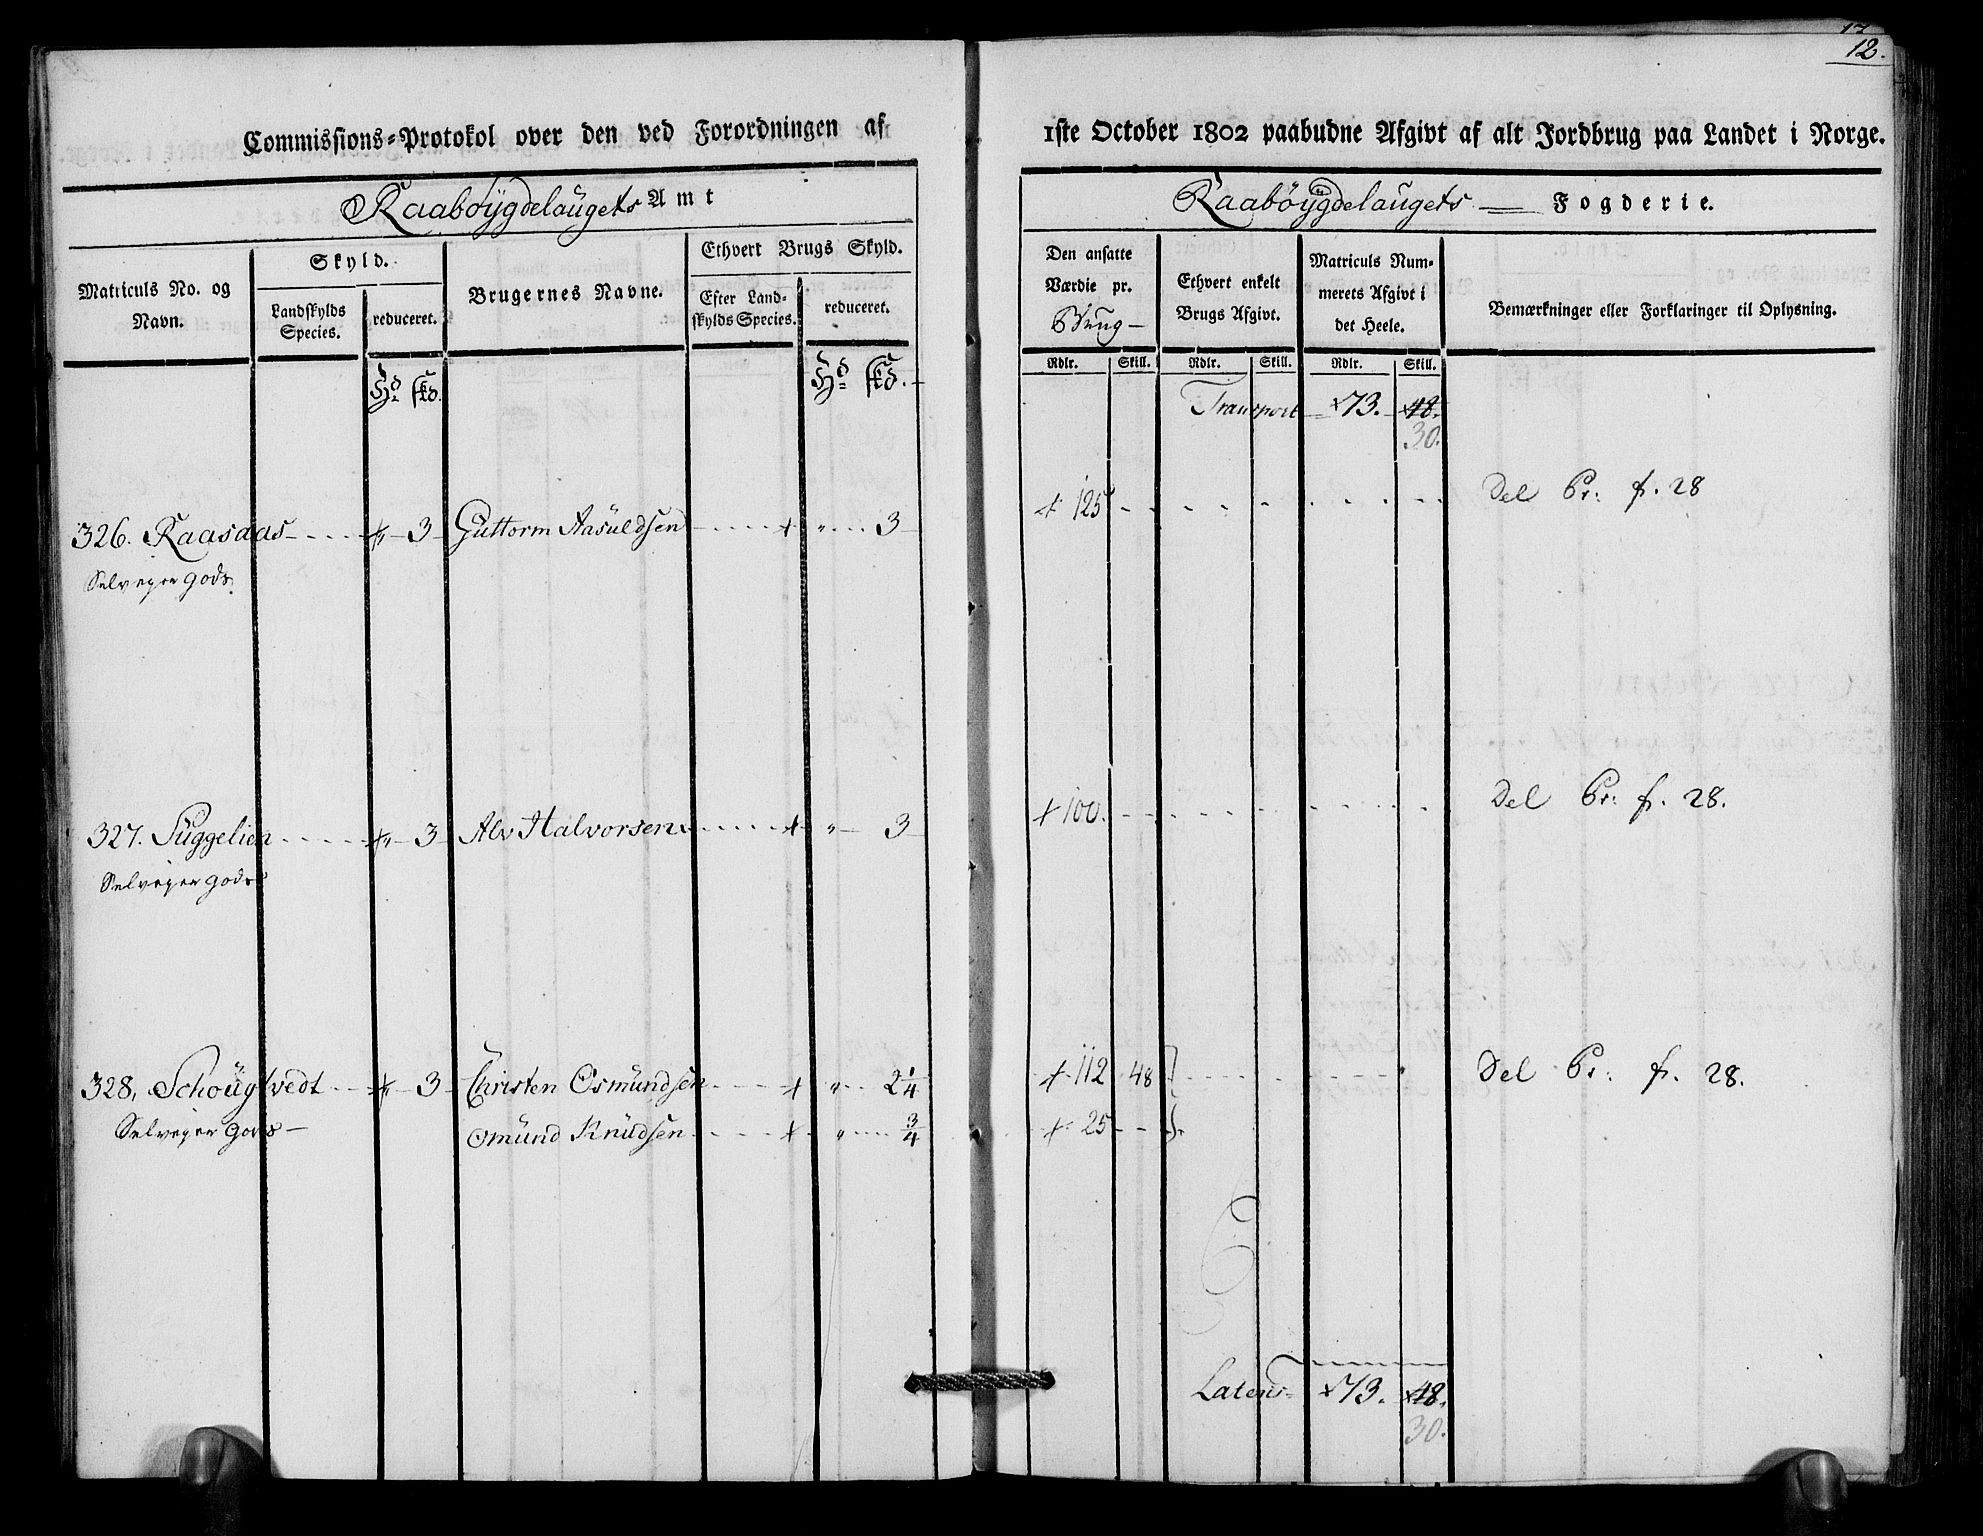 17
12.
Commissions=Protokol over den ved Forordningen af
1ste October 1802 paabudne Afgivt af alt Jordbrug paa Landet i Norge.
Raabøÿgdelaugets Amt
Raabøÿgdelaugets Fogderie.
Matriculs No. og Navn.
Skyld.
Landskylds Species.
reduceret.
Brugernes Navne.
Ethvert Brugs Skyld.
Efter Land=skylds Species.
reduceret.
Den ansatte Værdie pr. Brug
Ethvert enkelt Brugs Afgivt.
Matriculs Num=merets Afgivt i det Heele.
Bemærkninger eller Forklaringer til Oplysning.
Rdlr. Skill. Rdlr. Skill. Rdlr. Skill.
Hd. skd. Hd. skd.
Transport 73. 48.
30.
326. Raasaas 3 Guttorm Aasuldsen " 3 125 Del Pr: fr. 28
Selveyer gods.
327. Suggelien " 3 Alv Halvorsen " 3 100. Del Pr: fr. 28.
Selveyer gods
328, Schoügtvedt " 3 Christen Osmundsen " 2 1/4 112 48 Del Pr: fr. 28.
Selveyer gods Osmund Knudsen " 3/4 25
Latens 73. 48.
30.